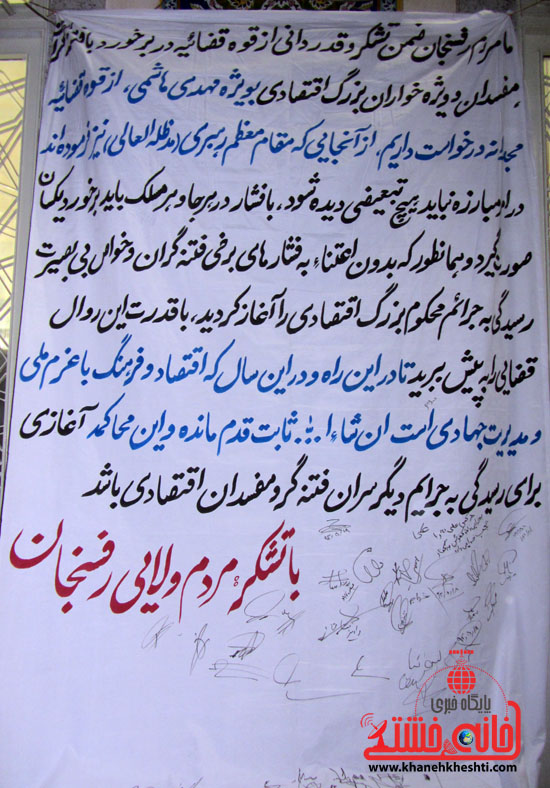 ما مردم رفسنجان ضمن تشکر و قدردانی از قوه قضائیه در برخورد با فتنه گران
مفسدان و ویژه خواران بزرگ اقتصادی بویژه مهدی هاشمی، از قوه قضائیه
مجدانه درخواست داریم. از آنجایی که مقام معظم رهبری (مدظله العالی) نیز فرموده اند
در این مبارزه نباید هیچ تبعیضی دیده شود، با فشار در هر جا و هر مسلک باید برخورد یکسان
صورت گیرد و همانطور که بدون اعتناء به فشارهای برخی فتنه گران و خواص بی بصیرت
رسیدگی به جرائم محکوم بزرگ اقتصادی را آغاز کردید، با قدرت این روال
قضایی را به پیش ببرید تا در این راه و در این سال که اقتصاد و فرهنگ با عزم ملی
و مدیریت جهادی است ان شاءا... ثابت قدم مانده و این محاکمه آغازی
برای رسیدگی به جرایم دیگر سران فتنه گر و مفسدان اقتصادی باشد
با تشکر مردم ولایی رفسنجان
پایگاه خبری
خانه خشتی
www.khanehkheshti.com